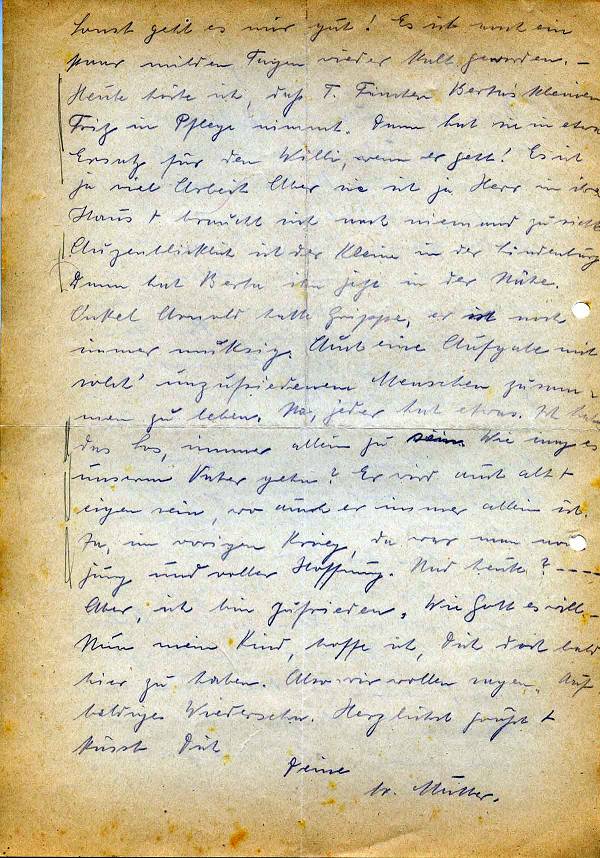 Sonst geht es mir gut! Es ist nach ein
paar milden Tagen wieder kalt geworden. –
Heute hörte ich, daß T. Finchen Bertas kleinen
Fritz in Pflege nimmt. Dann hat sie ja etwas
Ersatz für den Willi, wenn er geht! Es ist
ja viel Arbeit. Aber sie ist ja Herr in ihrem
Haus + braucht sich nach niemand zu richten.
Augenblicklich ist der Kleine in der Lindenburg.
Dann hat Berta ihn jetzt in der Nähe.
Onkel Arnold hatte Grippe, er ist noch
immer mucksig. Auch eine Aufgabe mit
solch' unzufriedenem Menschen zusam-
men zu leben. Na, jeder hat etwas. Ich habe
das Los, immer allein zu sein. Wie mag es
unserm Vater gehn? Er wird auch alt +
eigen sein, wo auch er immer allein ist.
Ja, im vorigen Krieg, da war man noch
jung und voller Hoffnung. Und heute? ----
Aber, ich bin zufrieden. Wie Gott es will. –
Nun mein Kind, hoffe ich, Dich doch bald
hier zu haben. Also wir wollen sagen, Auf
baldiges Wiedersehn. Herzlichst grüßt +
küsst Dich
Deine
lb. Mutter.